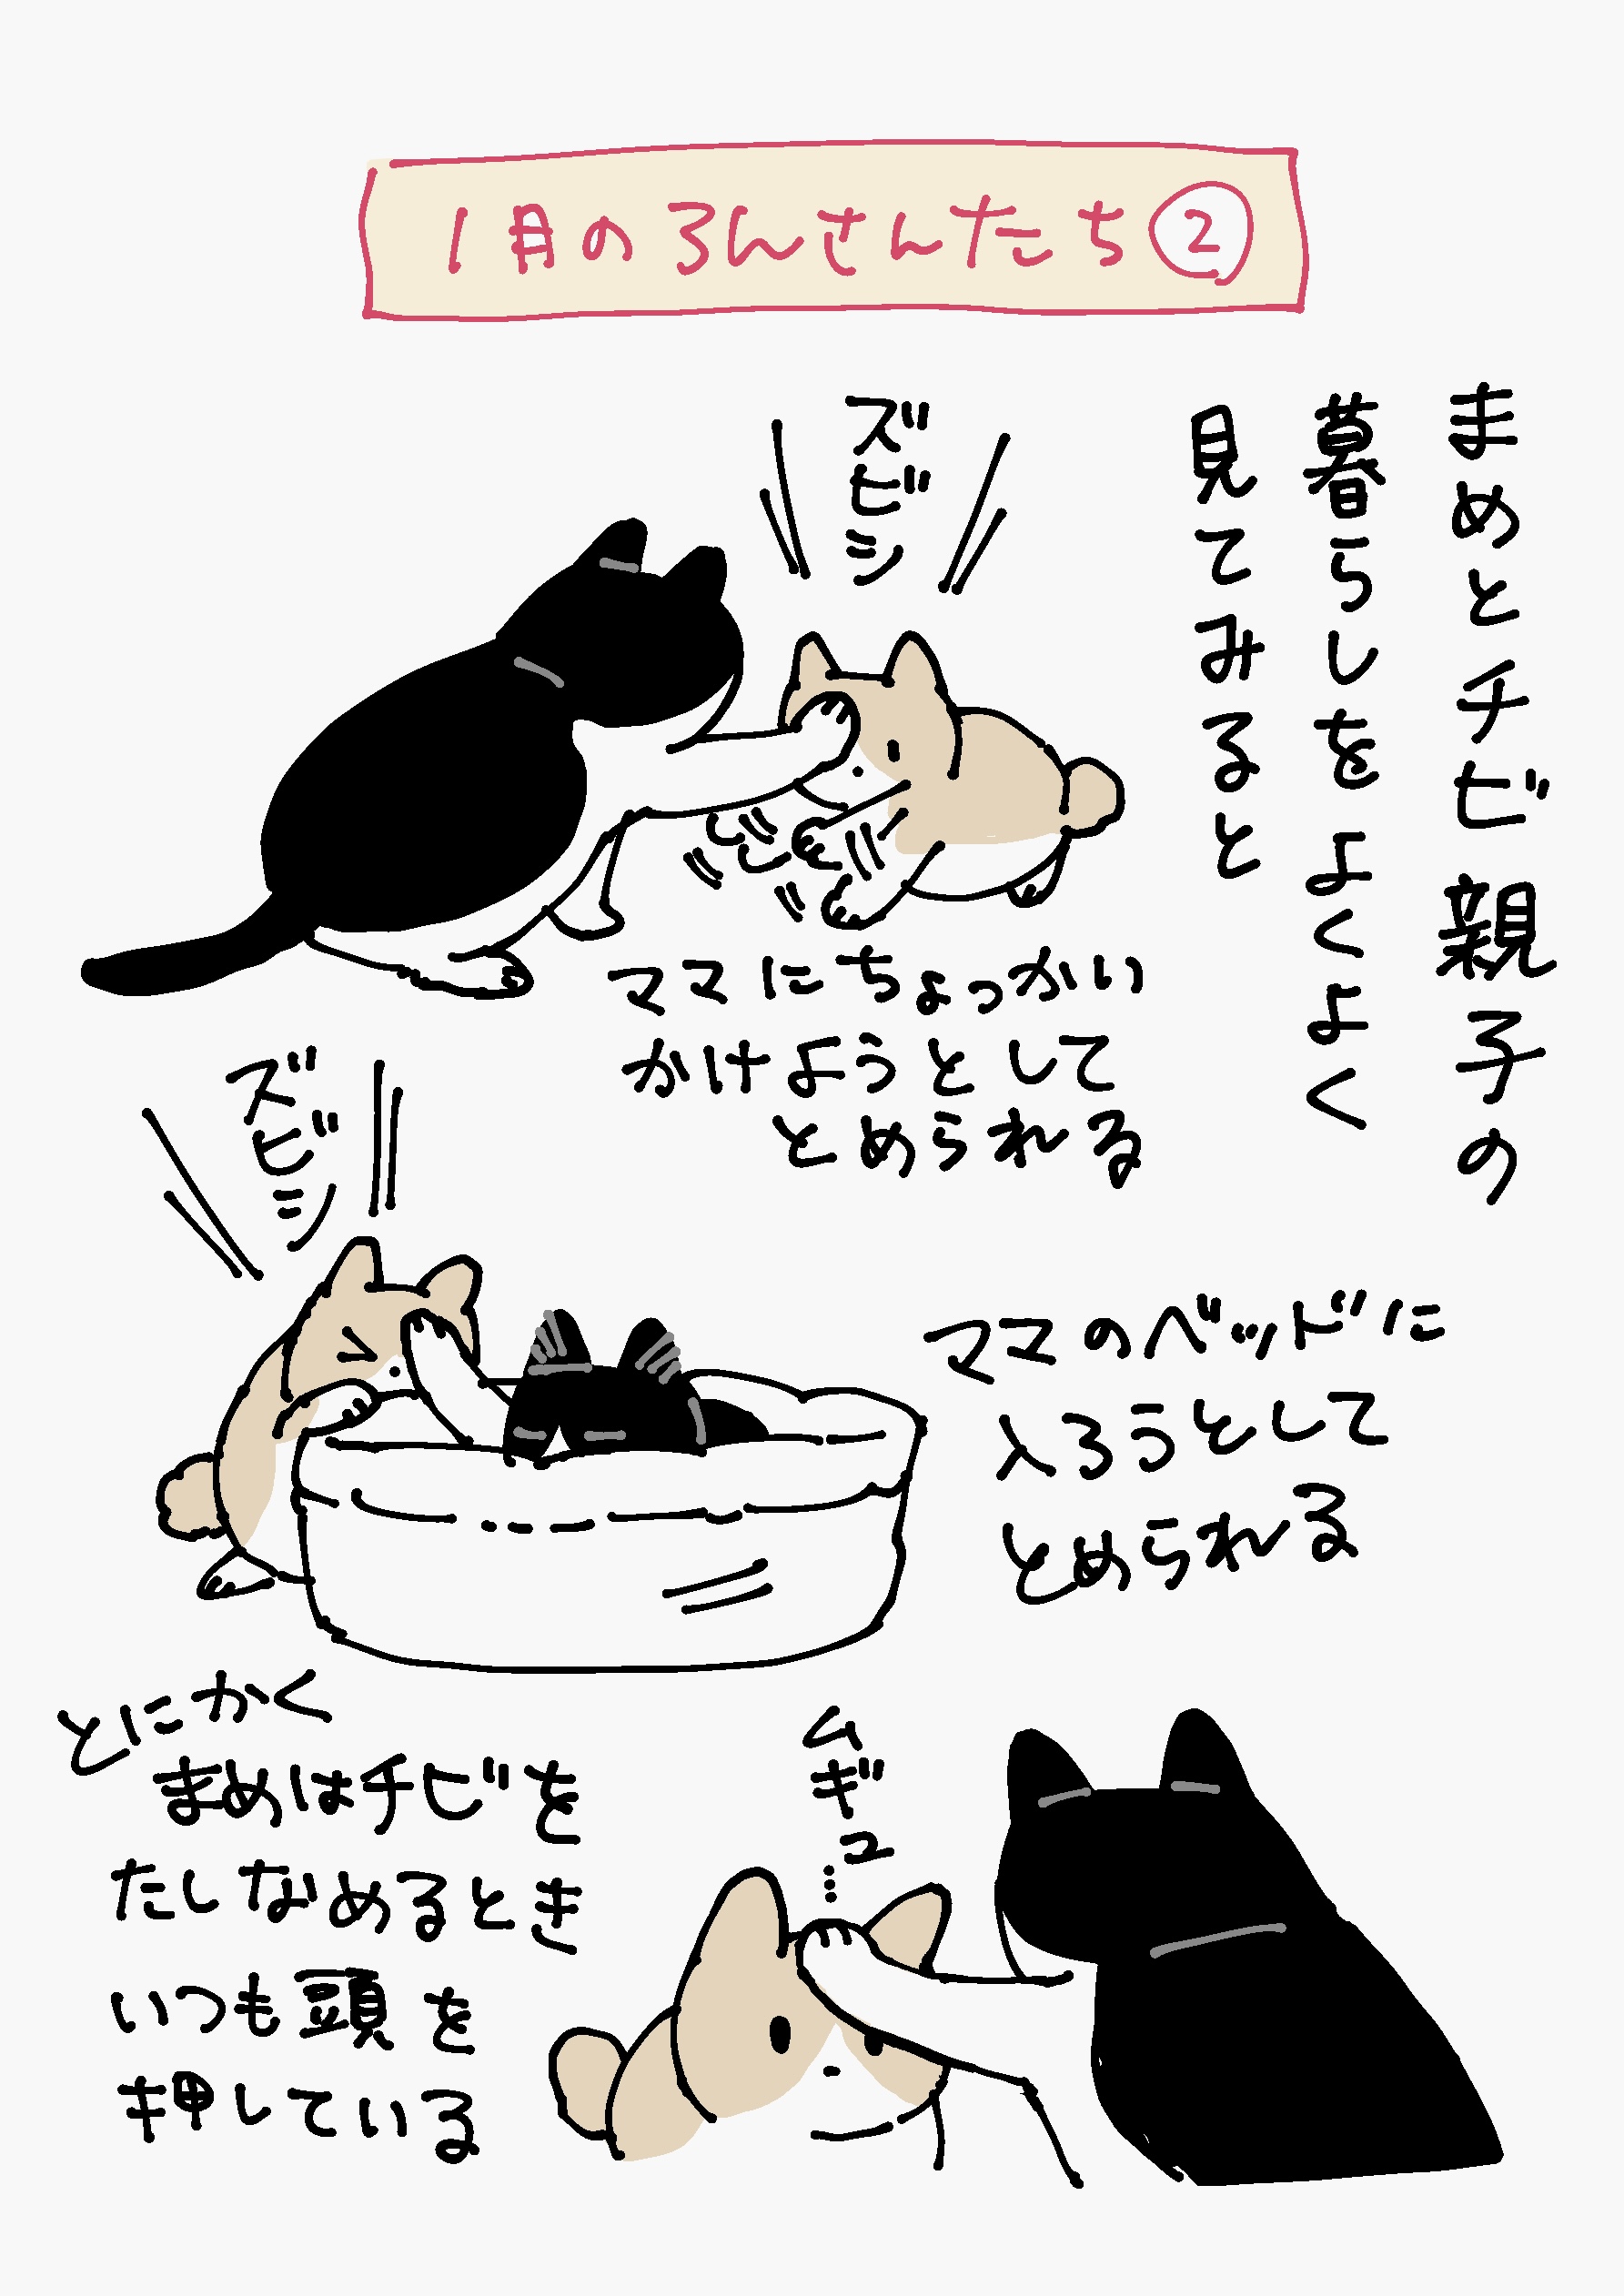 1月のろんさんたち②
まめとチビ親子の
暮らしをよくよく
見てみると
ズビシ
ママにちょっかい
かけようとして
とめられる
ズビシ
ママのベッドに
入ろうとして
とめられる
とにかく
まめはチビを
たしなめるとき
いつも頭を
押している
ムギュ…